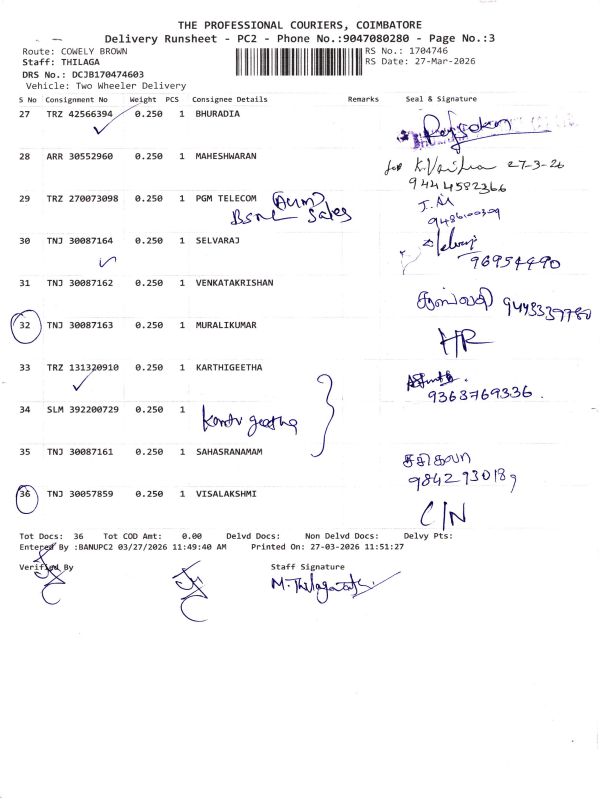 THE PROFESSIONAL COURIERS, COIMBATORE
Delivery Runsheet - PC2 - Phone No.:9047080280 - Page No.:3
Route: COWELY BROWN RS No.: 1704746
Staff: THILAGA RS Date: 27-Mar-2026
DRS No.: DCJB170474603
Vehicle: Two Wheeler Delivery
S No Consignment No Weight PCS Consignee Details Remarks Seal & Signature
27 TRZ 42566394 0.250 1 BHURADIA
28 ARR 30552960 0.250 1 MAHESHWARAN
for 27-3-26
9444582366
29 TRZ 270073098 0.250 1 PGM TELECOM
BSNL Sales
30 TNJ 30087164 0.250 1 SELVARAJ
96954490
31 TNJ 30087162 0.250 1 VENKATAKRISHAN
32 TNJ 30087163 0.250 1 MURALIKUMAR
HR
33 TRZ 131320910 0.250 1 KARTHIGEETHA
9363769336
34 SLM 392200729 0.250 1
35 TNJ 30087161 0.250 1 SAHASRANAMAM
சசிகலா
36 TNJ 30057859 0.250 1 VISALAKSHMI
C/N
Tot Docs: 36 Tot COD Amt: 0.00 Delvd Docs: Non Delvd Docs: Delvy Pts:
Entered By :BANUPC2 03/27/2026 11:49:40 AM Printed On: 27-03-2026 11:51:27
Verified By Staff Signature